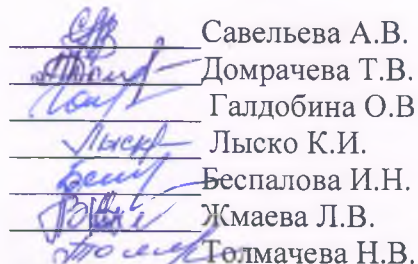 Савельева А.В.
Домрачева Т.В.
Галдобина О.В
Лыско К.И.
Беспалова И.Н.
Жмаева Л.В.
Толмачева Н.В.